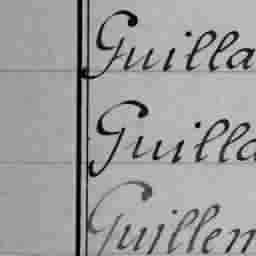 Guilla
Guilla
Guillem